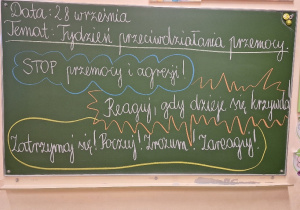 Data: 28 września
Temat: Tydzień przeciwdziałania przemocy.
STOP przemocy i agresji!
Reaguj, gdy dzieje się krzywda!
Zatrzymaj się! Poczuj! Zrozum! Zareaguj!